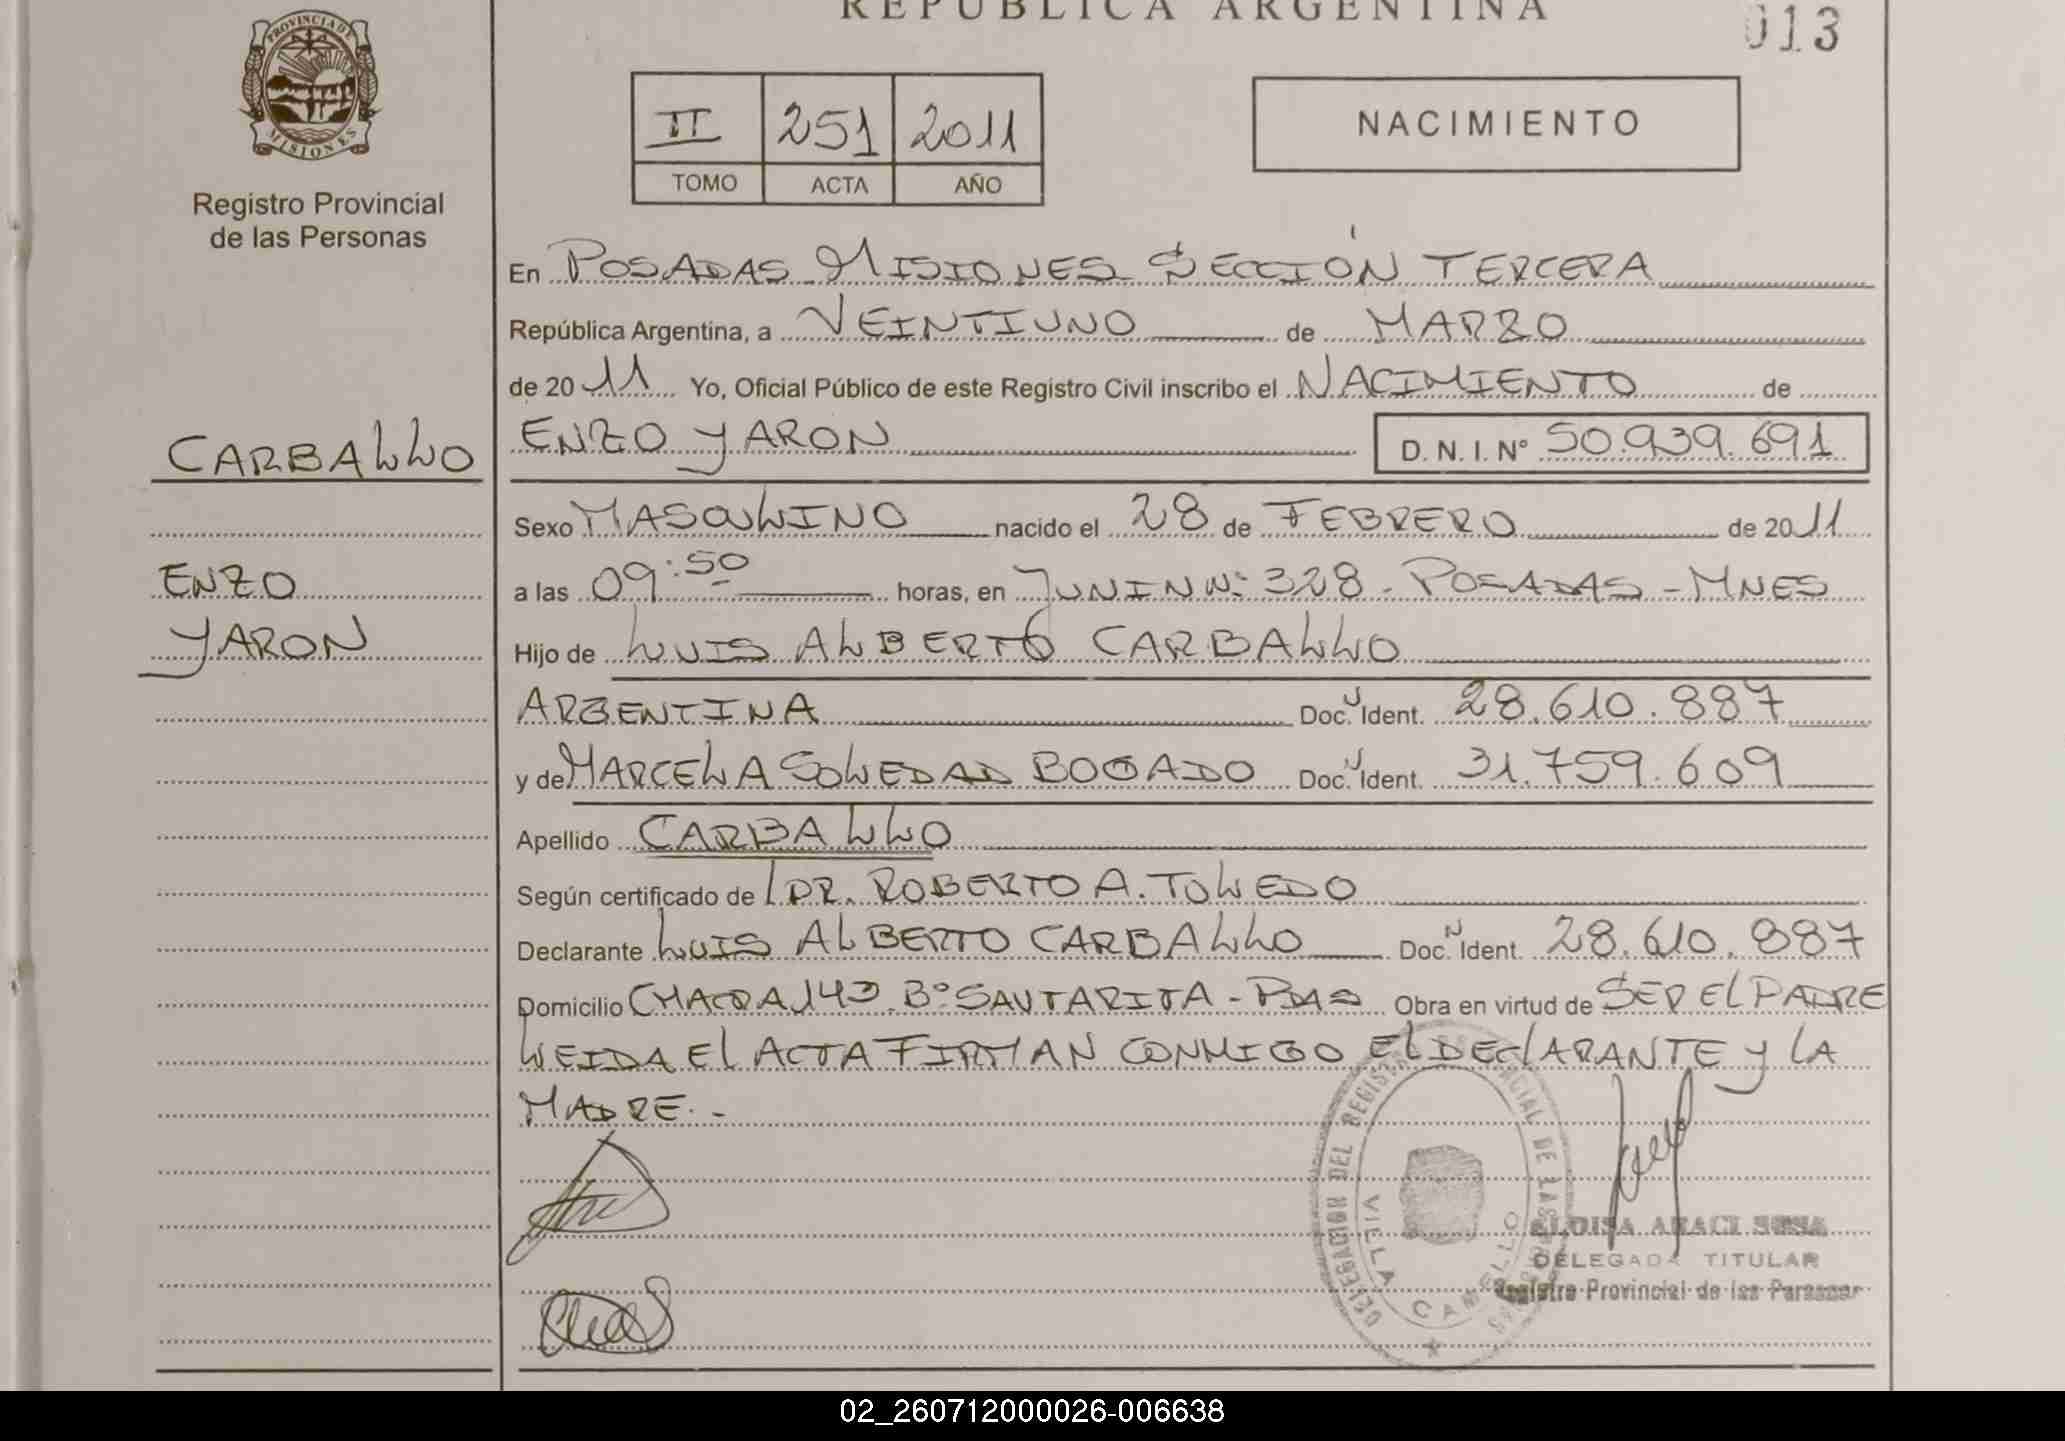 REPUBLICA ARGENTINA
013
PROVINCIA DE
MISIONES
Registro Provincial
de las Personas
II 251 2011
TOMO ACTA AÑO
NACIMIENTO
En POSADAS MISIONES SECCIÓN TERCERA
República Argentina, a VEINTIUNO de MARZO
de 20 11 Yo, Oficial Público de este Registro Civil inscribo el NACIMIENTO de
CARBALLO
ENZO YARON D. N. I. Nº 50.939.691
Sexo MASCULINO nacido el 28 de FEBRERO de 2011
ENZO
YARON
a las 09:50 horas, en JUNIN Nº: 328 - POSADAS - MNES
Hijo de LUIS ALBERTO CARBALLO
ARGENTINA Doc. Ident. 28.610.887
y de MARCELA SOLEDAD BOGADO Doc. Ident. 31.759.609
Apellido CARBALLO
Según certificado de DR. ROBERTO A. TOLEDO
Declarante LUIS ALBERTO CARBALLO Doc. Ident. 28.610.887
Domicilio CHACRA 143 Bº SANTA RITA - PDAS Obra en virtud de SER EL PADRE
LEIDA EL ACTA FIRMAN CONMIGO EL DECLARANTE Y LA
MADRE. -
DELEGACION DEL REGISTRO PROVINCIAL DE LAS PERSONAS
VILLA CAMELLO
ELOISA ARACI SOSA
DELEGADA TITULAR
Registro Provincial de las Personas
02_260712000026-006638